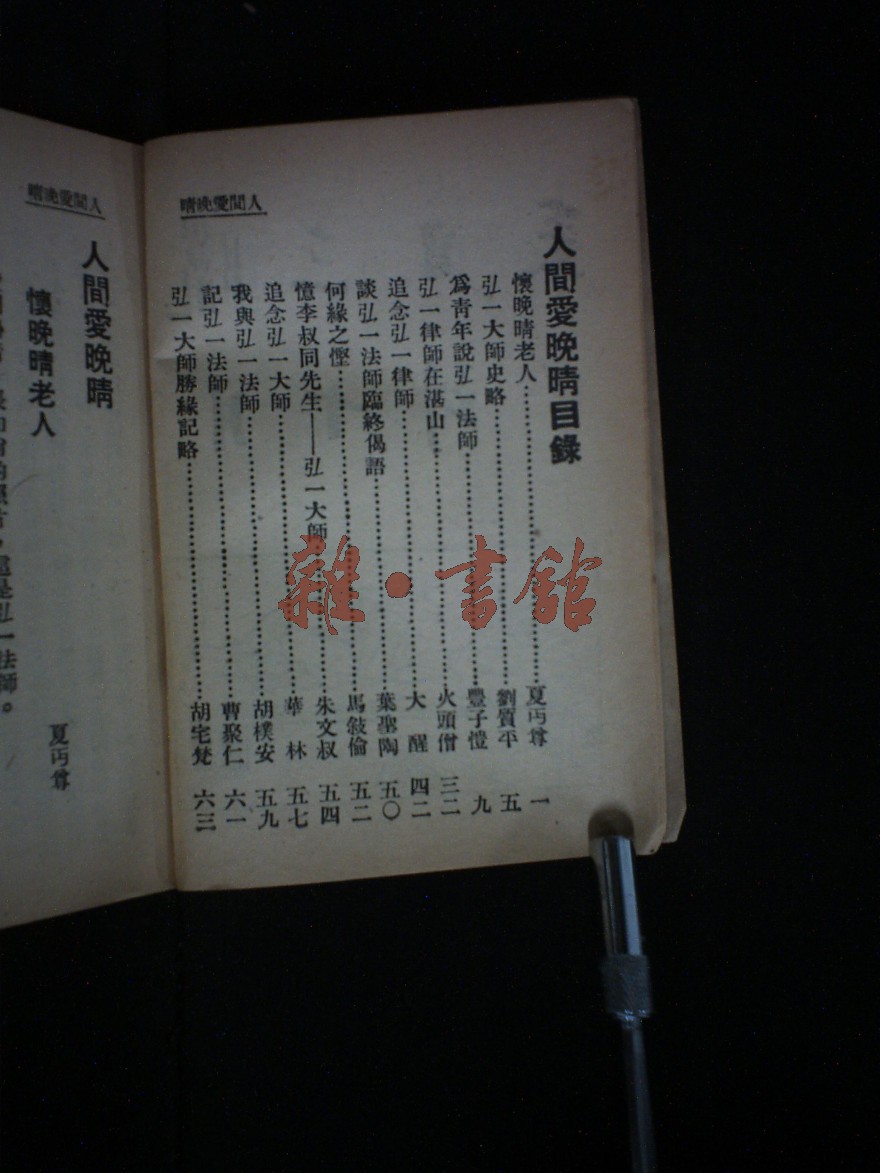 人間愛晚晴
人間愛晚晴目錄
懷晚晴老人……夏丏尊 一
弘一大師史略……劉質平 五
為青年說弘一法師……豐子愷 九
弘一律師在湛山……火頭僧 三二
追念弘一律師……大醒 四二
談弘一法師臨終偈語……葉聖陶 五〇
何緣之慳……馬敍倫 五二
憶李叔同先生——弘一大師……朱文叔 五四
追念弘一大師……華林 五七
我與弘一法師……胡樸安 五九
記弘一法師……曹聚仁 六一
弘一大師勝緣記略……胡宅梵 六三
雜·書館
人間愛晚晴
人間愛晚晴
懷晚晴老人
夏丏尊
還是弘一法師。